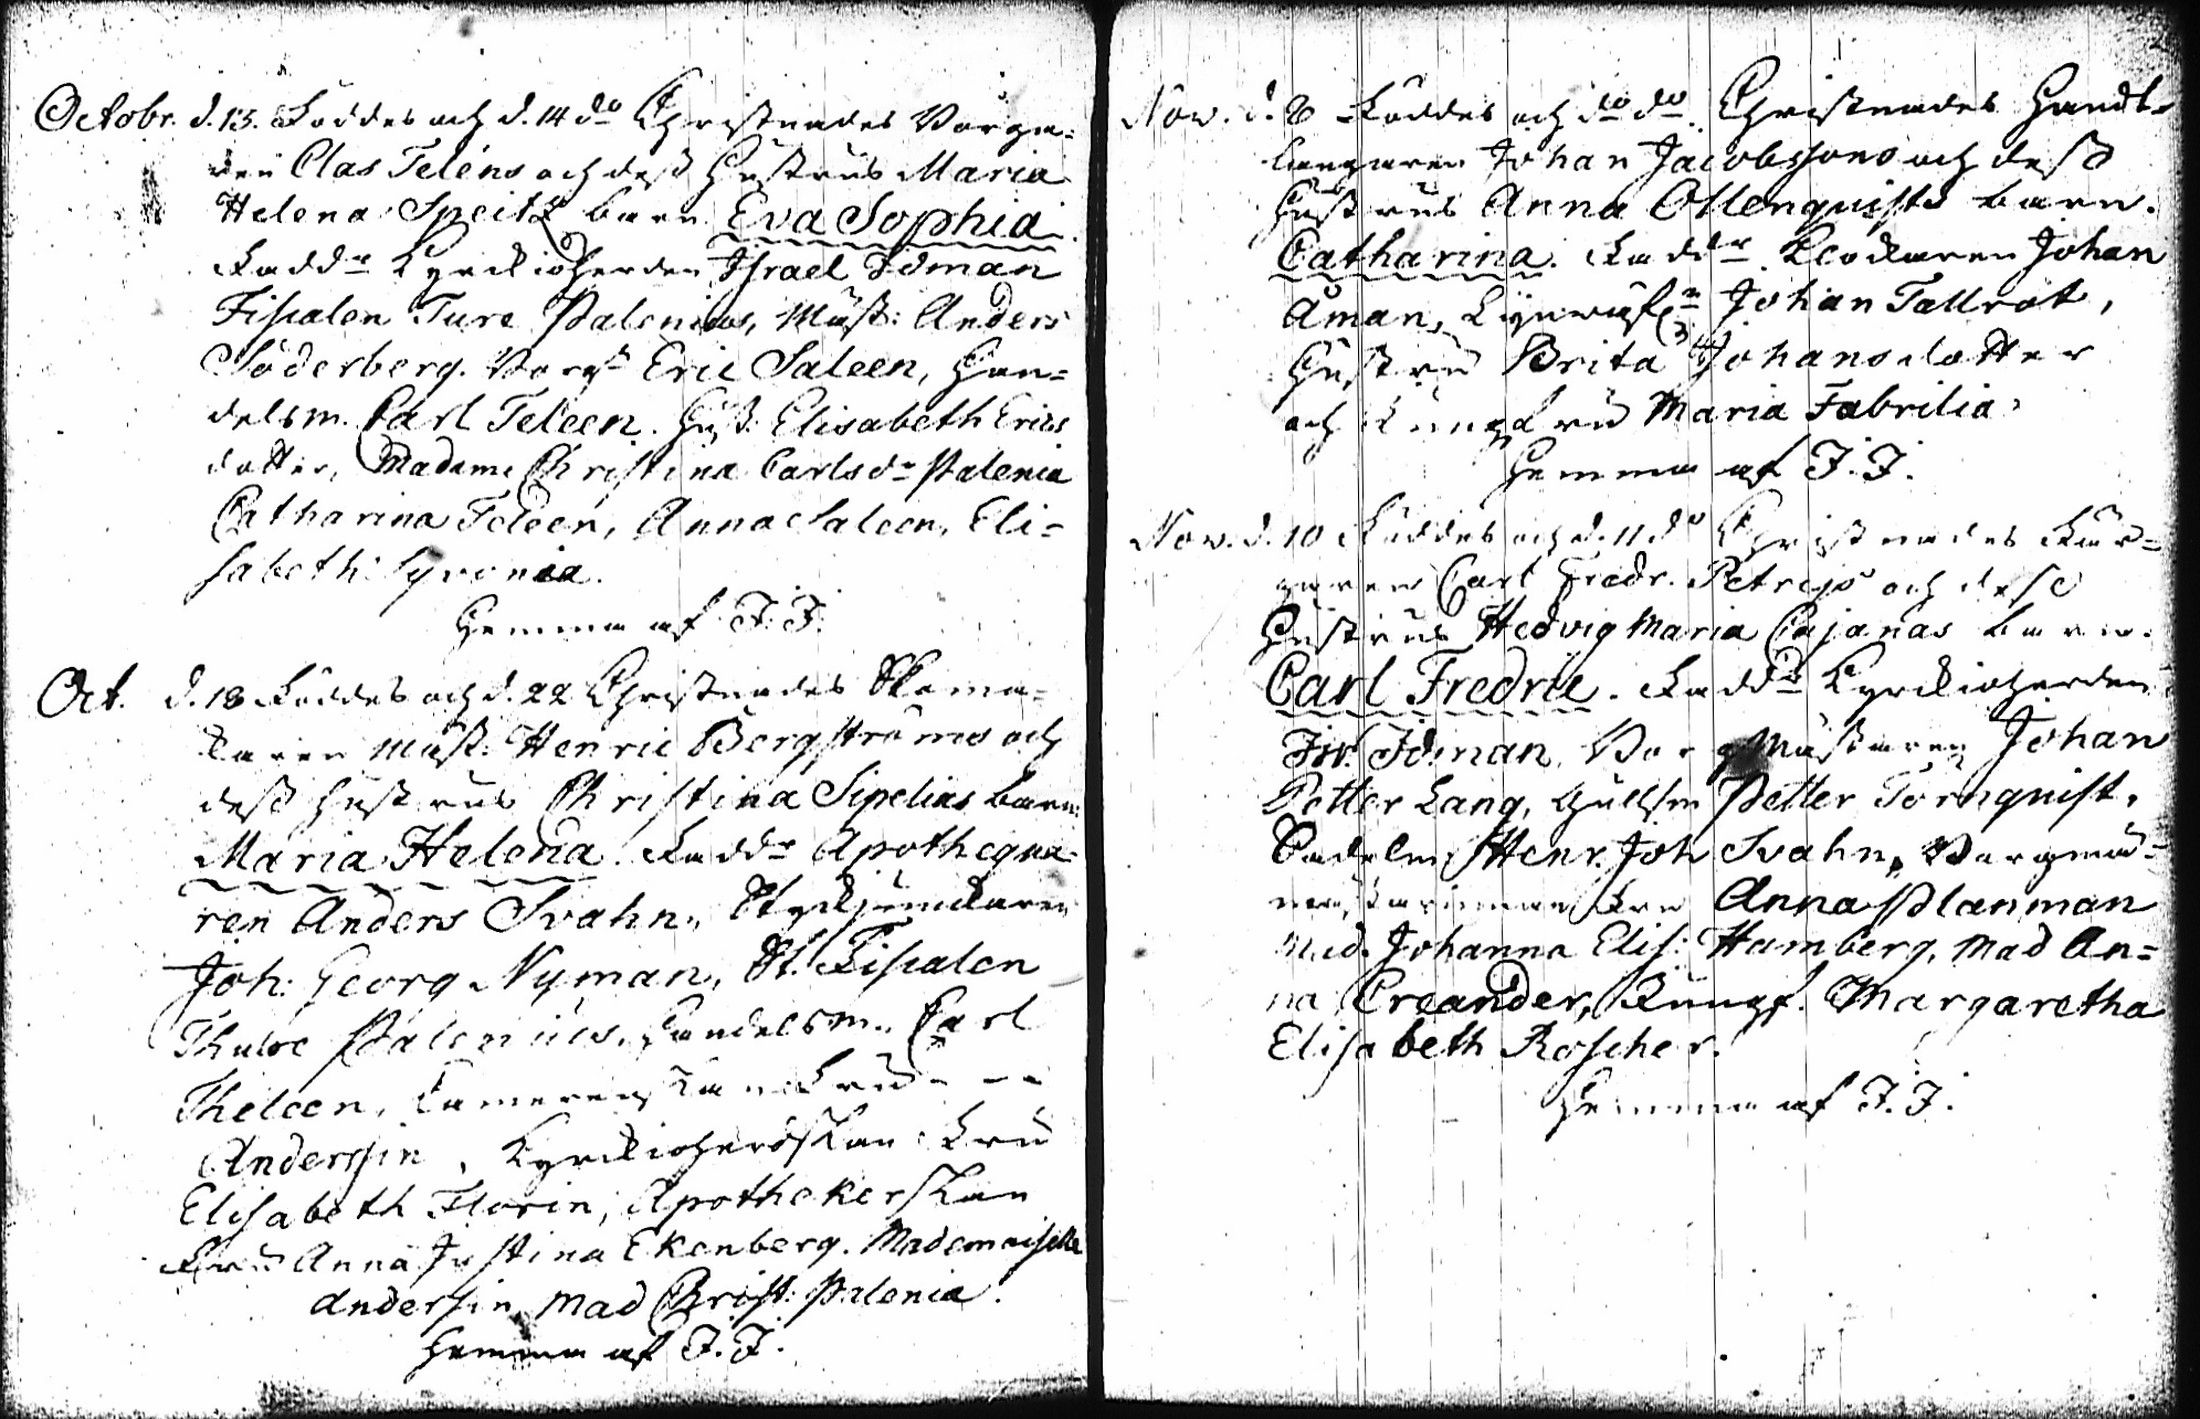 Octobr. d. 13. Föddes och d. 14 do Christnades Borga=
ren Clas Teléns och dess Hustrus Maria
Helena Speitz barn Eva Sophia.
Faddr Kyrckioherden Israel Idman
Fiscalen Ture Palenius, Mäst: Anders
Söderberg. Borgr Eric Saleen, Han=
delsm. Carl Teleen. Hust: Elisabeth Erics
dotter, Madame Christina Carlsdr Palenia
Catharina Teleen, Anna Saleen, Eli=
sabeth Syronia.
Hemma af I. I.
Oct. d. 18 Föddes och d. 22 Christnades Skoma=
karen Mäst: Henric Bergströms och
dess Hustrus Christina Sipelias barn
Maria Helena. Faddr Apothequa=
ren Anders Svahn, Styckjunkaren
Joh: Georg Nyman, St. Fiscalen
Thure Palenius, Handelsm. Carl
Theleen, Fru - -
Anderssin, Kyrckioherdskan Fru
Elisabeth Florin, Apothekerskan
Fru Anna Justina Ekenberg. Mademoiselle
Anderssin, Mad Christ: Palenia.
Hemma af I. I.
Nov. d. 8 Föddes och do do Christnades Handt=
langaren Johan Jacobssons och dess
Hustrus Anna Ollenquists barn.
Catharina. Faddr Klockaren Johan
Åman, Johan Tallrot,
Hustru Brita Johansdotter
och Jungfru Maria Fabrilia
Hemma af I. I.
Nov. d. 10 Föddes och d. 11 do Christnades Fär=
garen Carl Fredr. Petrejs och dess
Hustrus Hedvig Maria Cajanas barn.
Carl Fredric. Faddr Kyrckioherden
Isr. Idman, Borgmästaren Johan
Petter Lang, Gullsm Petter Törnquist,
Sadelm Henr. Joh Svahn, Borgmä=
mästarinnan Fru Anna Planman
Mad. Johanna Elis: Hamberg, Mad An=
na Creander, Jungf. Margaretha
Elisabeth Roscher.
Hemma af I. I.